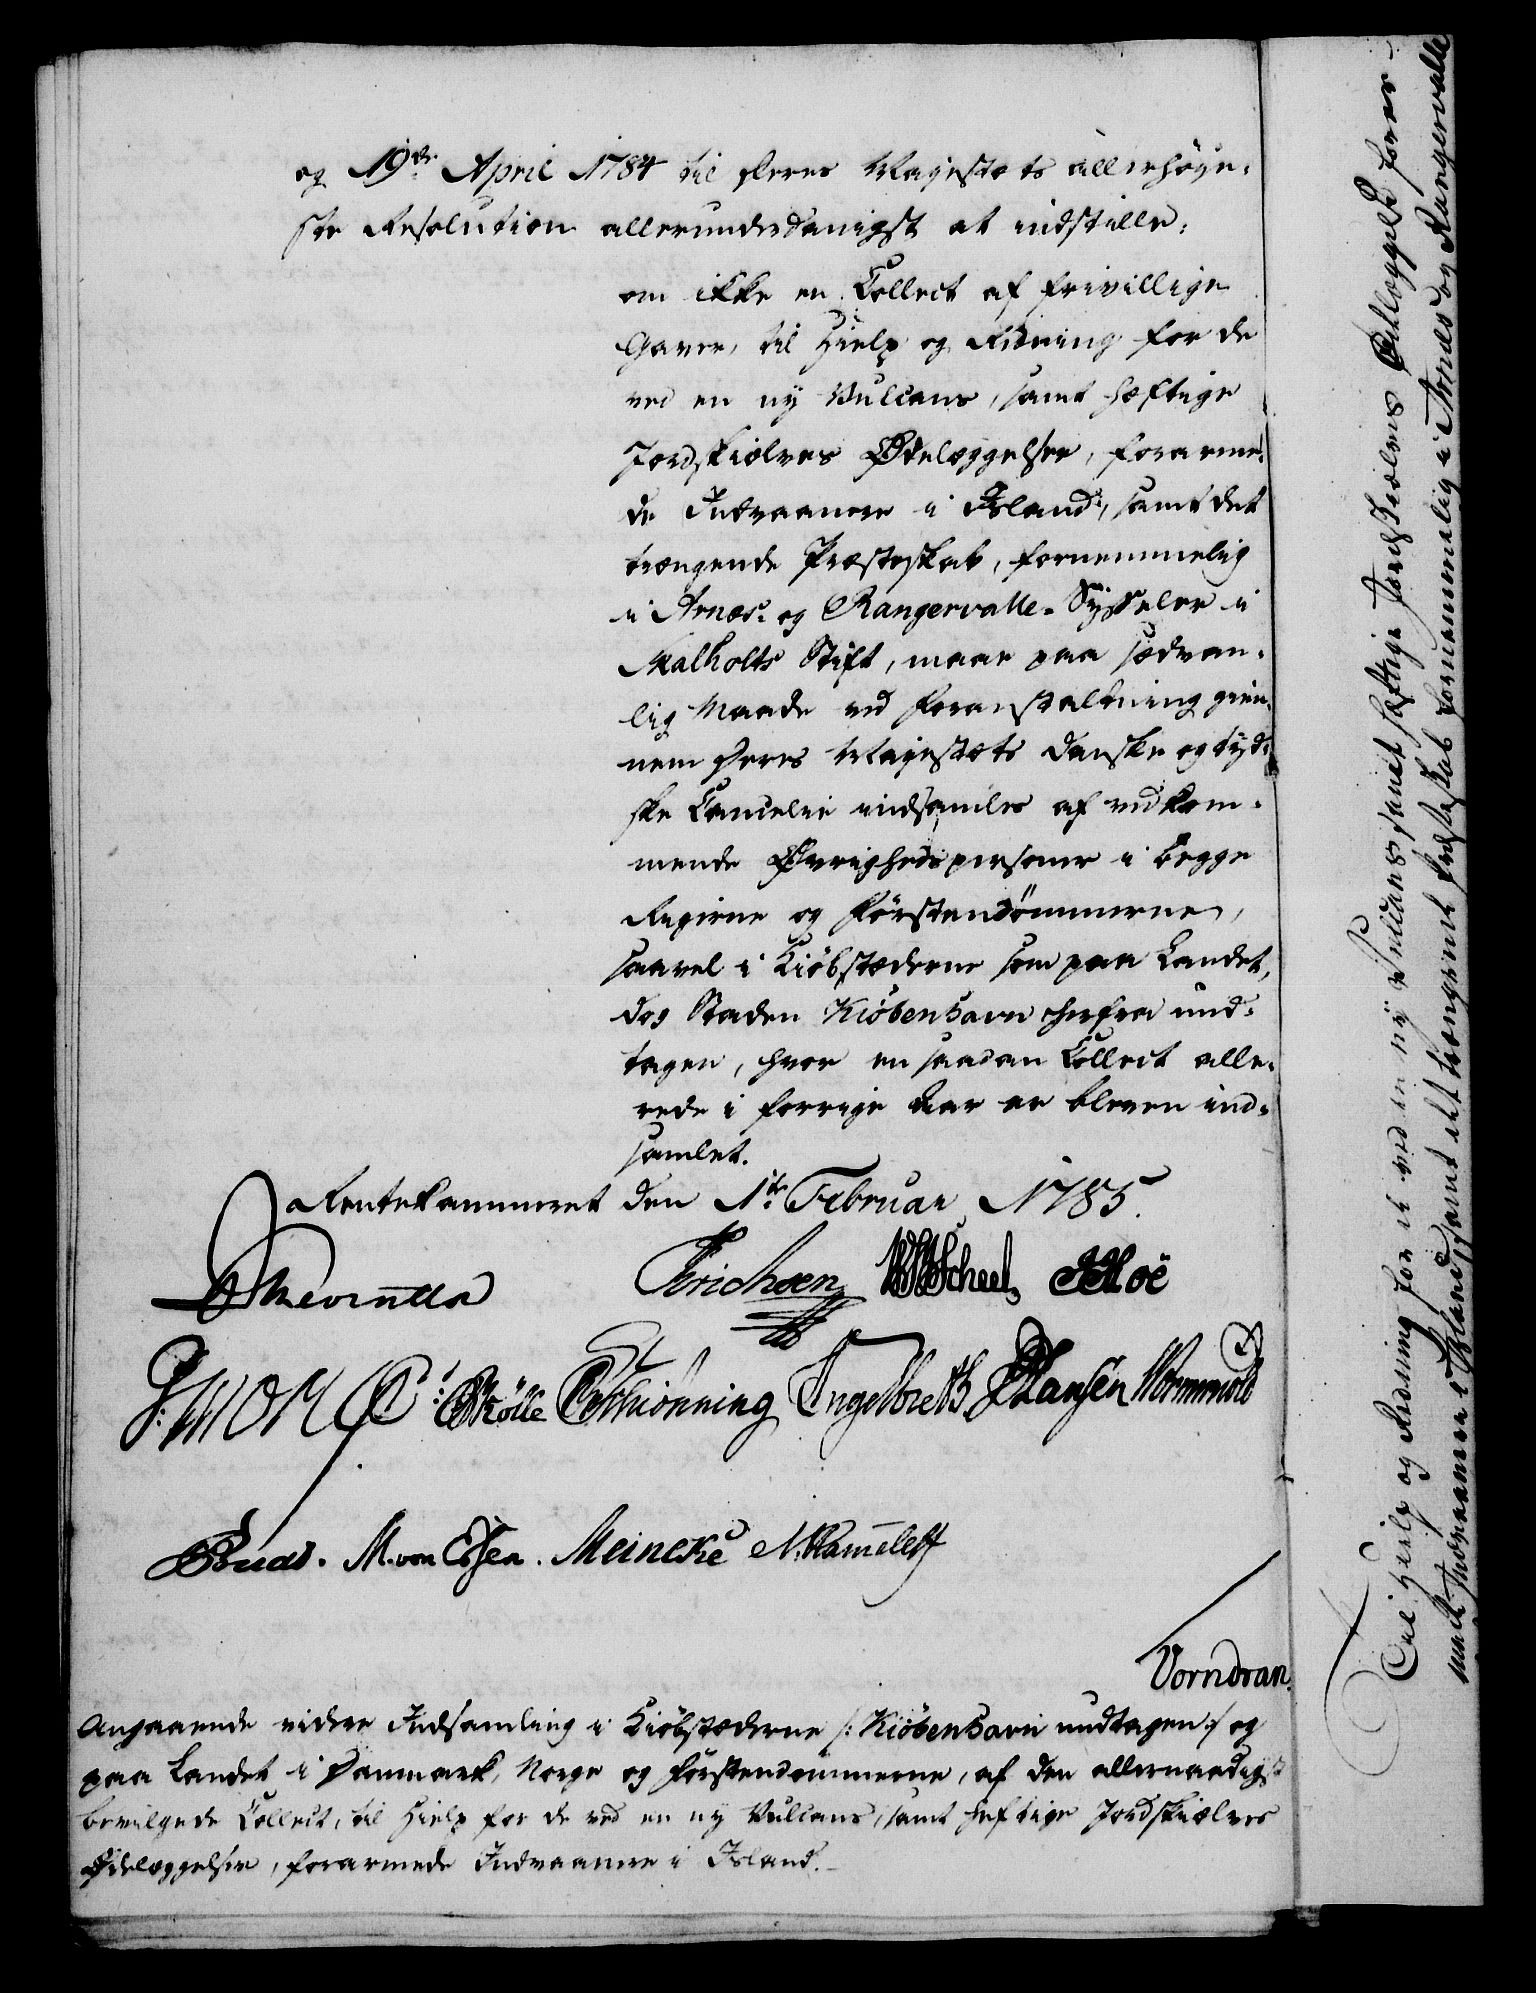 og 19de April 1784 til Deres Majestæts allerhøye-
ste Resolution allerunderdanigst at indstille:
om ikke en Collect af frivillige
Gaver, til Hielp og Redning for de
ved en ny Vulcans, samt hæftige
Jordskiælves Ødelæggelser, forarme-
de Indvaanere i Island, samt det
trængende Præsteskab, fornemmelig
i Arnæs- og Rangervalle-Sysseler i
Skalholts Stift, maae paa sædvan-
lig Maade ved Foranstaltning gien-
nem Deres Majestæts danske og tyd-
ske Cancelie indsamles af vedkom-
mende Øvrighedspersoner i begge
Rigerne og Førstendømmerne,
saavel i Kiøbstæderne som paa Landet,
dog Staden Kiøbenhavn herfra und-
tagen, hvor en saadan Collect alle-
rede i forrige Aar er bleven ind-
samlet.
Rentekammeret den 1te Februar 1785.
Erichsen Scheel
Schiønning Engelbreth Hansen Wormwold
M. von Essen. Meincke
Vorndran.
Angaaende videre Indsamling i Kiøbstæderne /: Kiøbenhavn undtagen :/ og
paa Landet i Danmark, Norge og Førstendømmerne, af den allernaadigst
bevilgede Collect, til Hielp for de ved en ny Vulcans, samt heftige Jordskiælves
Ødelæggelser, forarmede Indvaanere i Island.
Til Hielp og Redning for de ved en ny Vulcans samt hæftige Jordskiælves Ødelæggelse forar-
mede Indvaanere i Island, samt det trængende Præsteskab fornemmelig i Arnæs og Rangervalle